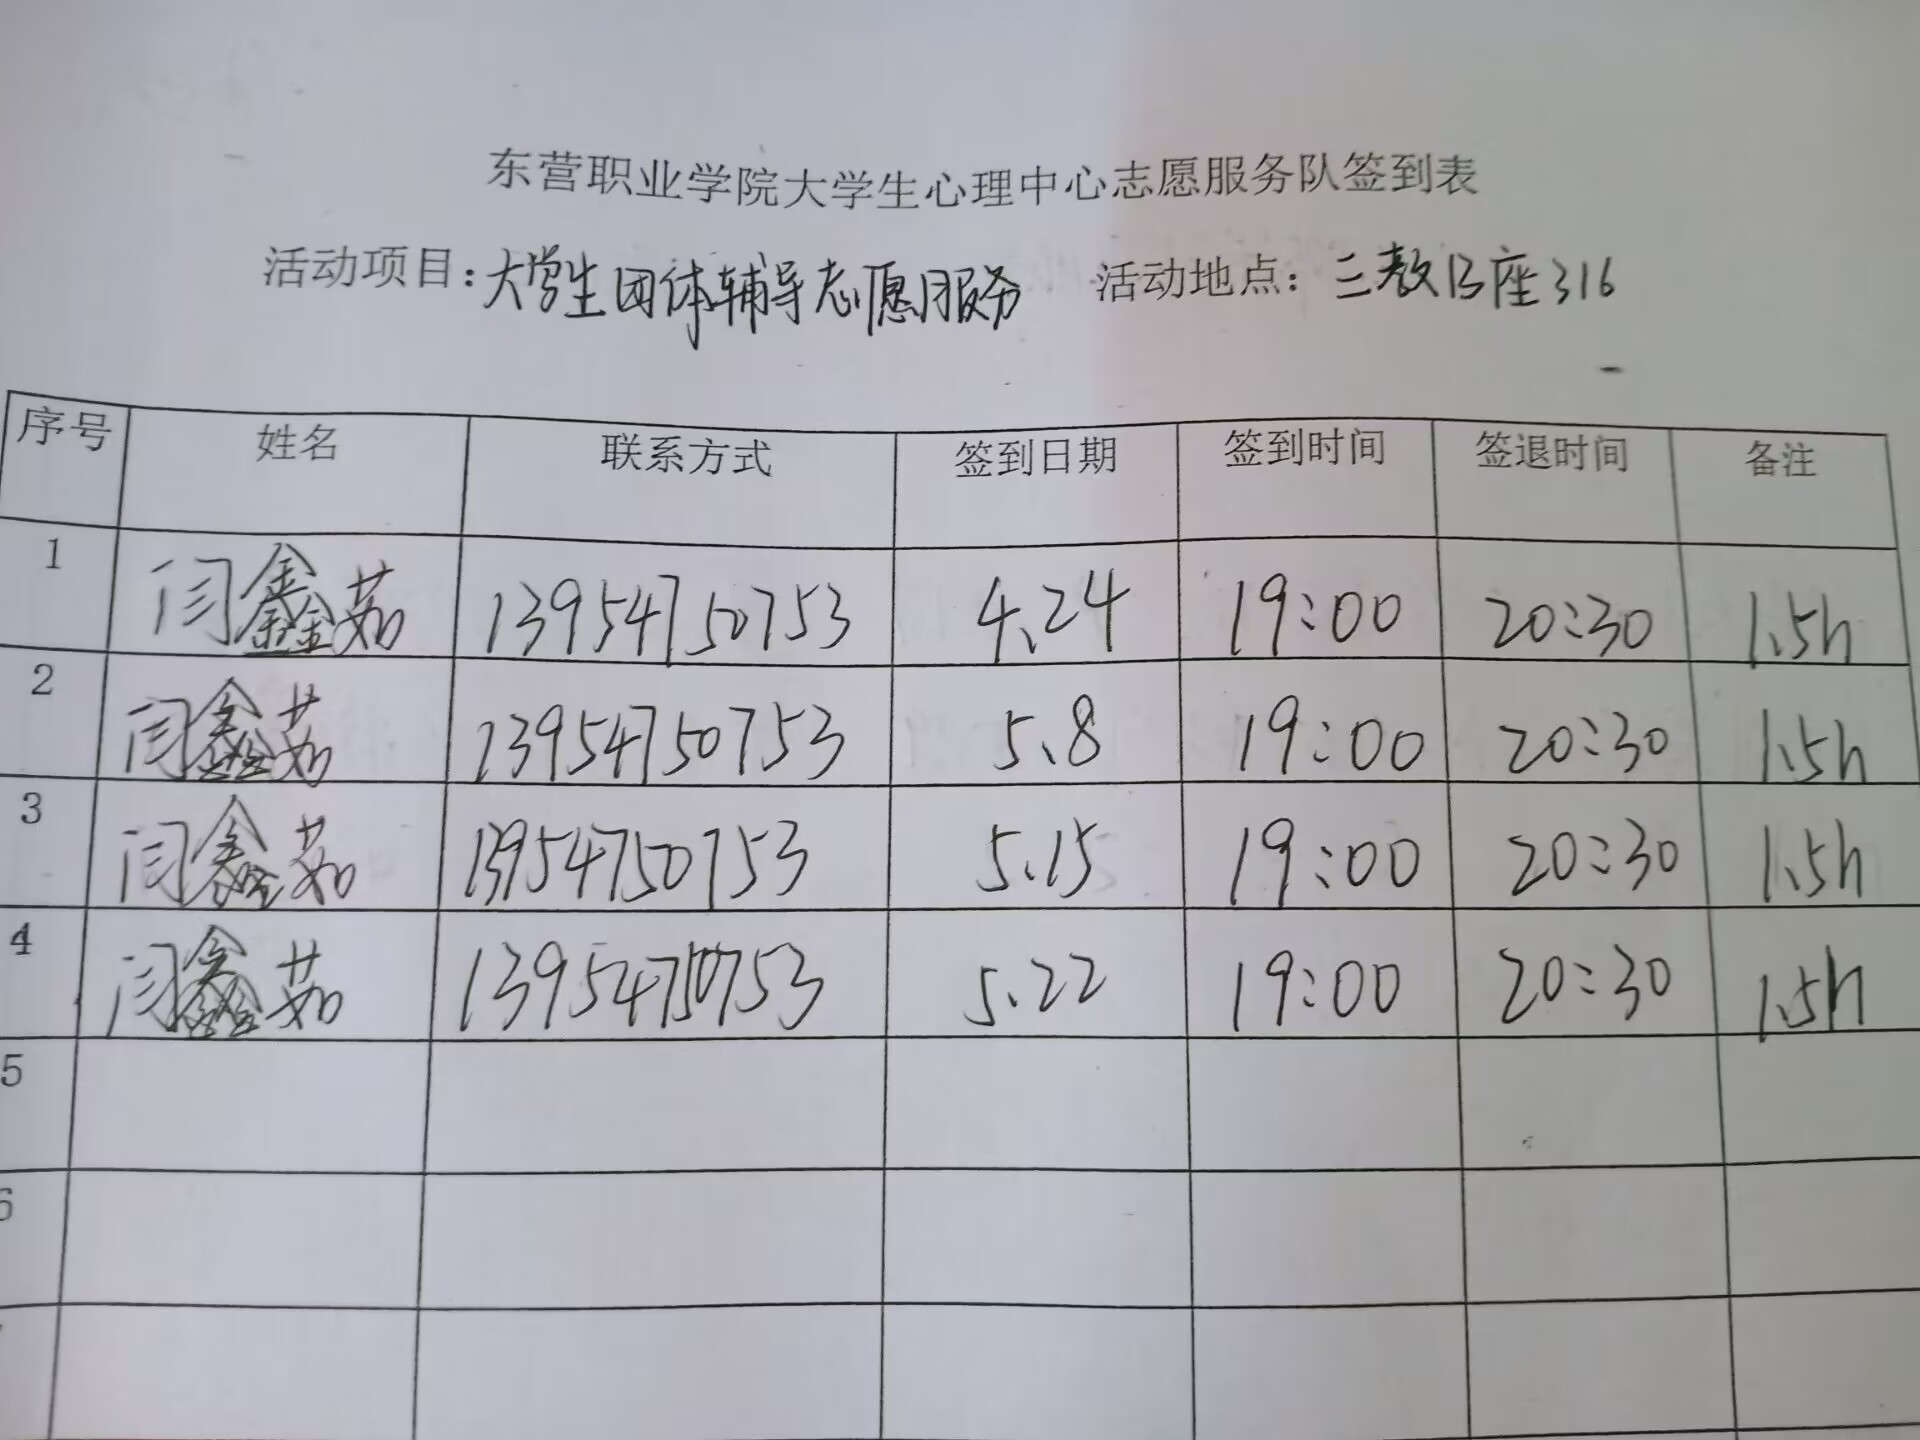 东营职业学院大学生心理中心志愿服务队签到表
活动项目：大学生团体辅导志愿服务 活动地点：三教B座316
序号 姓名 联系方式 签到日期 签到时间 签退时间 备注
1 闫鑫茹 13954750753 4.24 19:00 20:30 1.5h
2 闫鑫茹 13954750753 5.8 19:00 20:30 1.5h
3 闫鑫茹 13954750753 5.15 19:00 20:30 1.5h
4 闫鑫茹 13954750753 5.22 19:00 20:30 1.5h
5
6